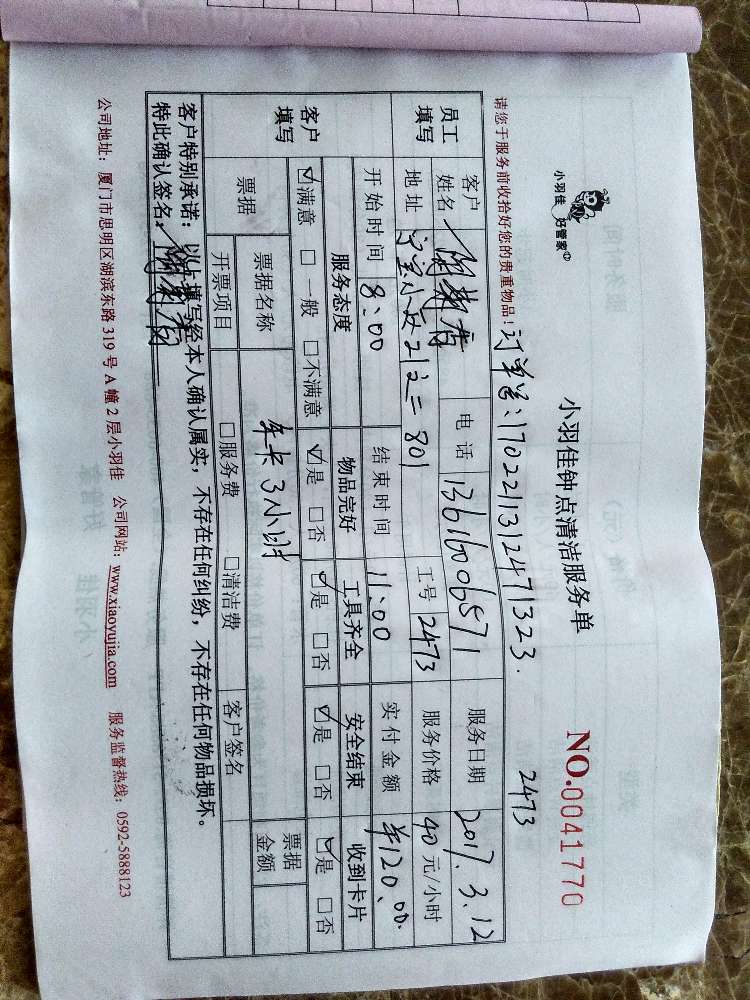 小羽佳 好管家
小羽佳钟点清洁服务单
NO.0041770
请您于服务前收拾好您的贵重物品! 订单号:1702211312471323. 2473
员工填写 客户姓名 电话 13616006571 服务日期 2017.3.12
地址 21之二801 工号 2473 服务价格 40元/小时
开始时间 8:00 结束时间 11:00 实付金额 ¥120.00
客户填写 服务态度 物品完好 工具齐全 安全结束 收到卡片
☑满意 □一般 □不满意 ☑是 □否 ☑是 □否 ☑是 □否 ☑是 □否
票据 票据名称 年卡3小时 票据金额
开票项目 □服务费 □清洁费 客户签名
客户特别承诺:以上填写经本人确认属实,不存在任何纠纷,不存在任何物品损坏。
特此确认签名:
公司地址:厦门市思明区湖滨东路319号A幢2层小羽佳 公司网站:www.xiaoyujia.com 服务监督热线:0592-5888123